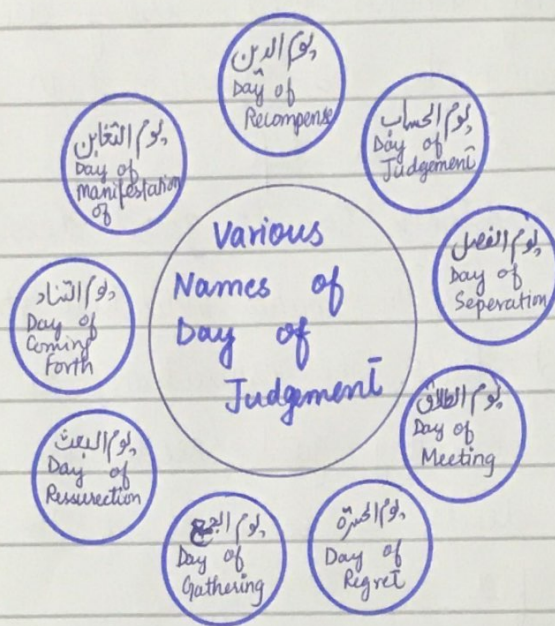 Various
Names of
Day of
Judgement
يوم الدين
Day of
Recompense
يوم الحساب
Day of
Judgement
يوم الفصل
Day of
Seperation
يوم الطلاق
Day of
Meeting
يوم الحسرة
Day of
Regret
يوم الجمع
Day of
Gathering
يوم البعث
Day of
Ressurection
يوم التناد
Day of
Coming
Forth
يوم التغابن
Day of
Manifestation
of